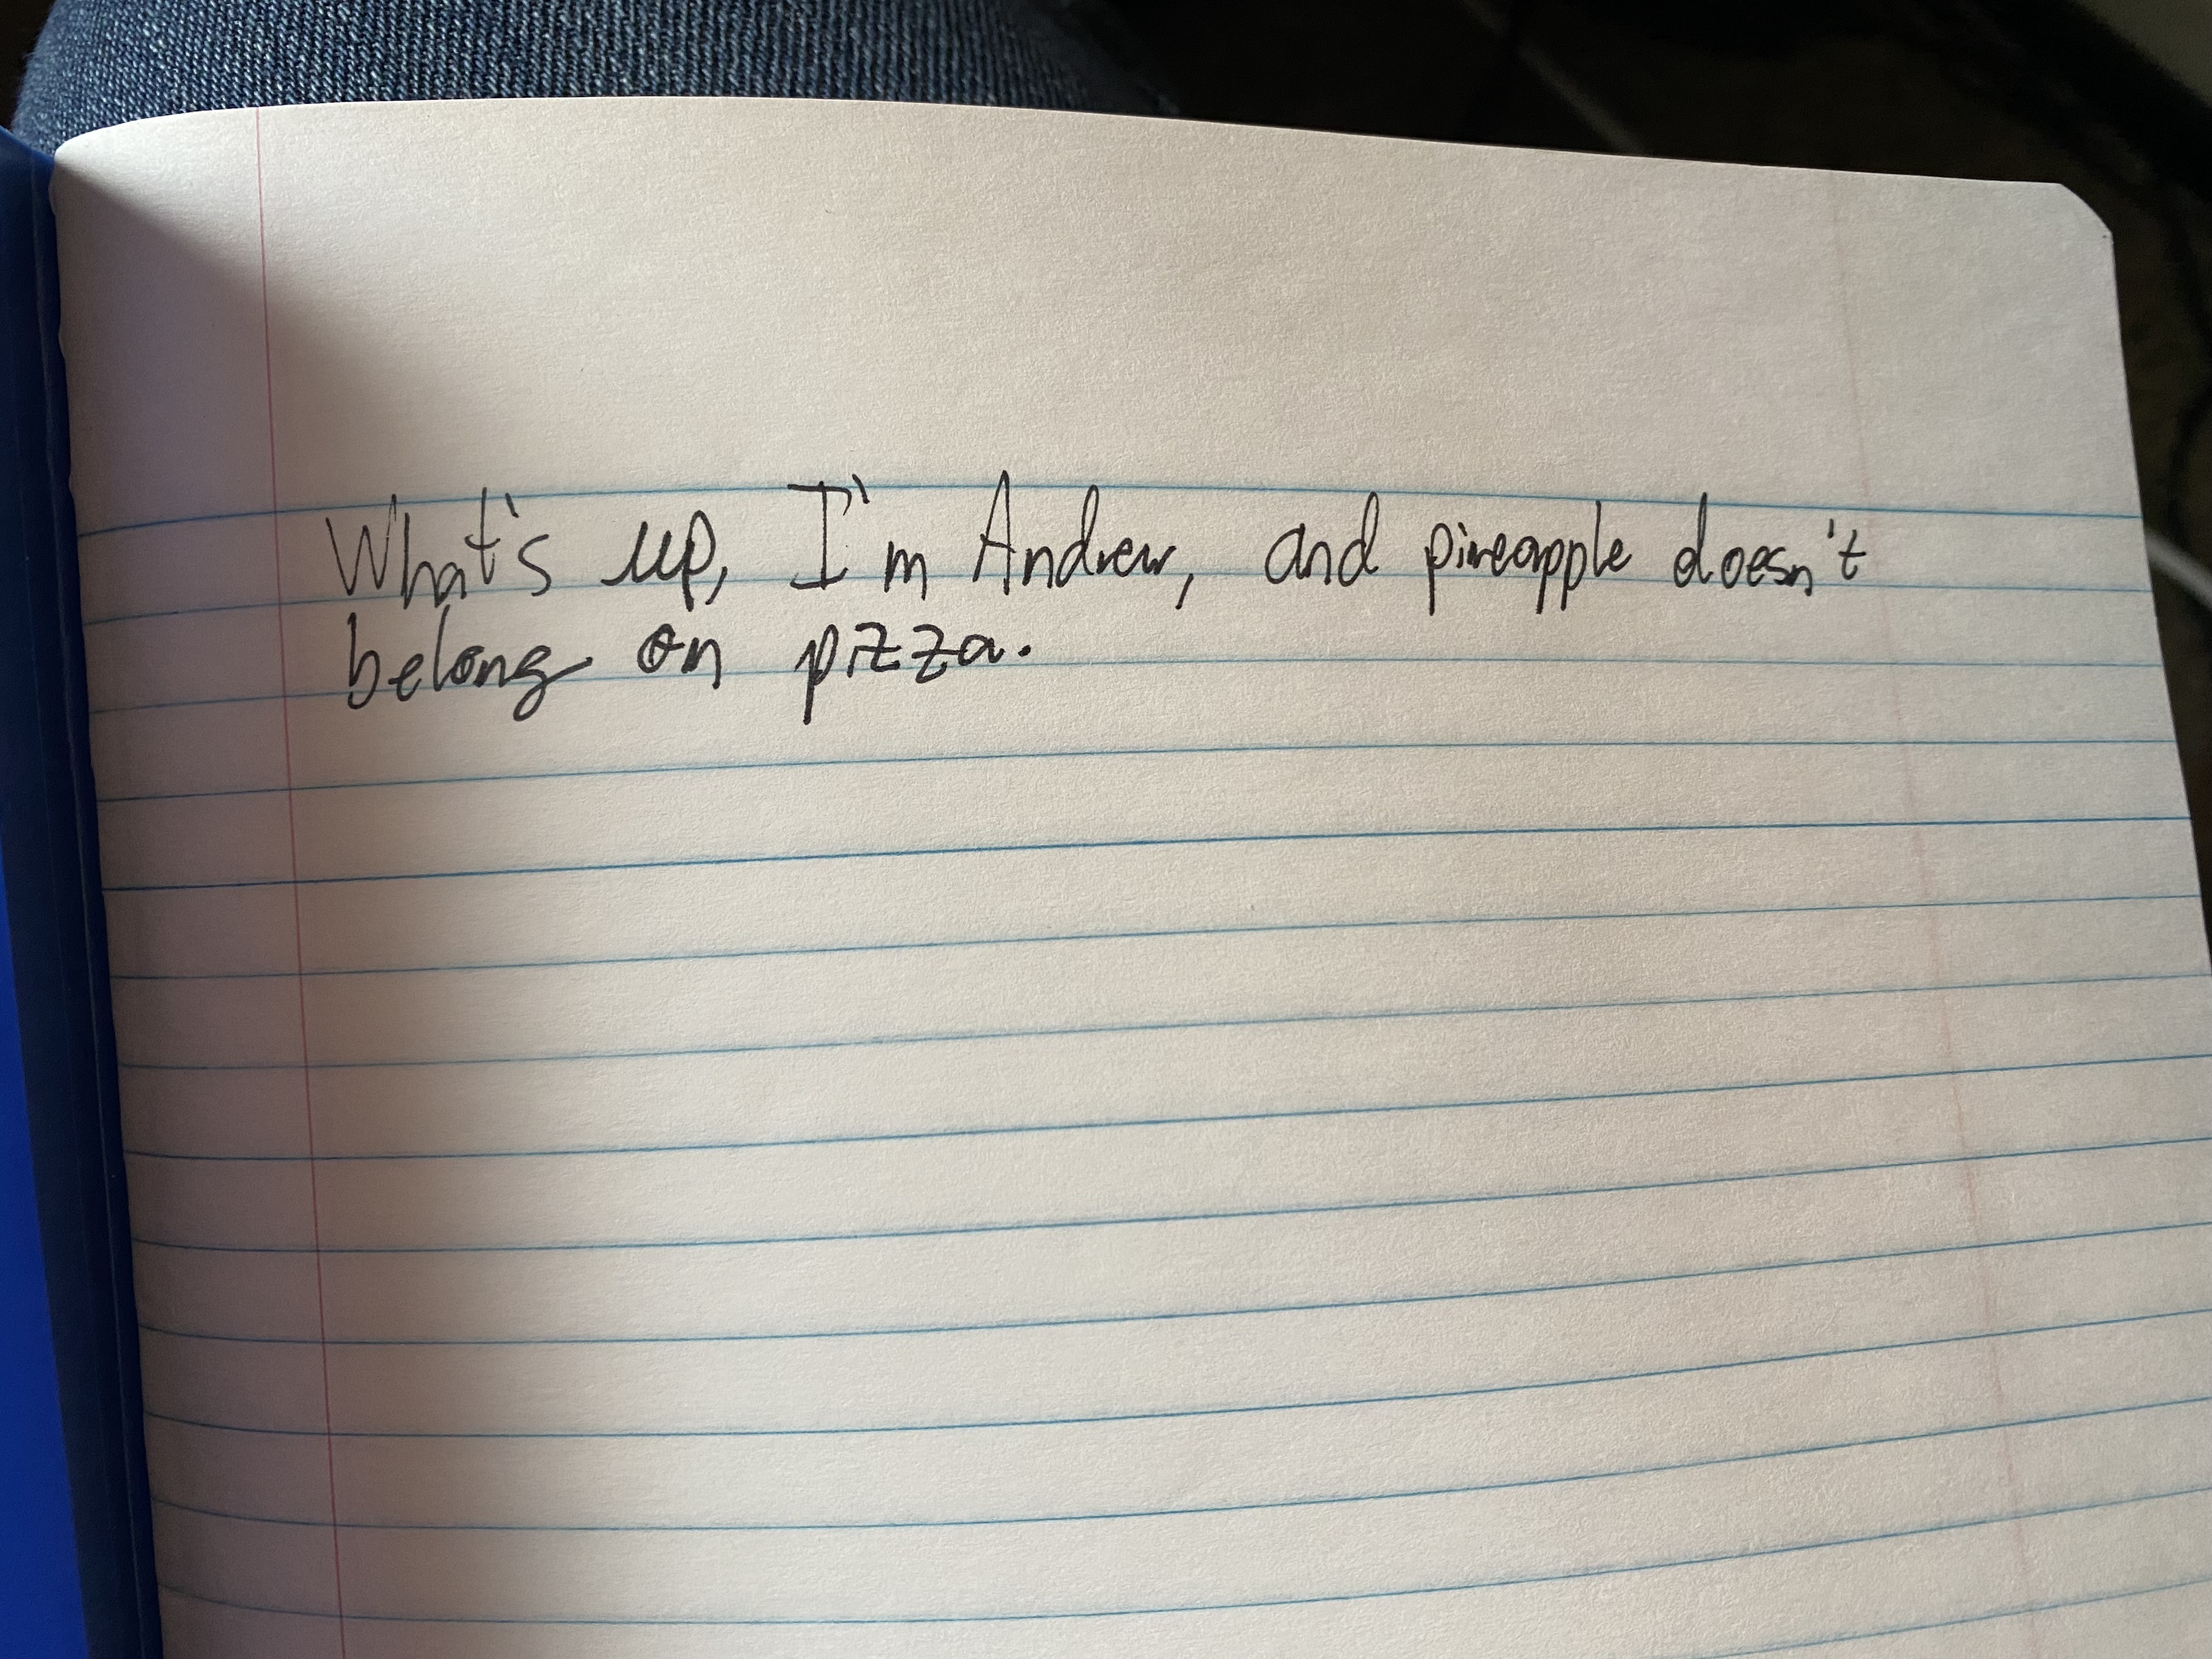 What's up, I'm Andrew, and pineapple doesn't
belong on pizza.